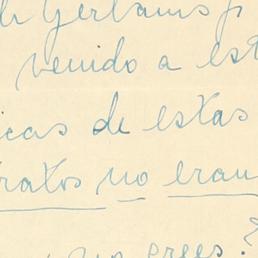 venido a est
icas de estas
ratos no eran
no crees?